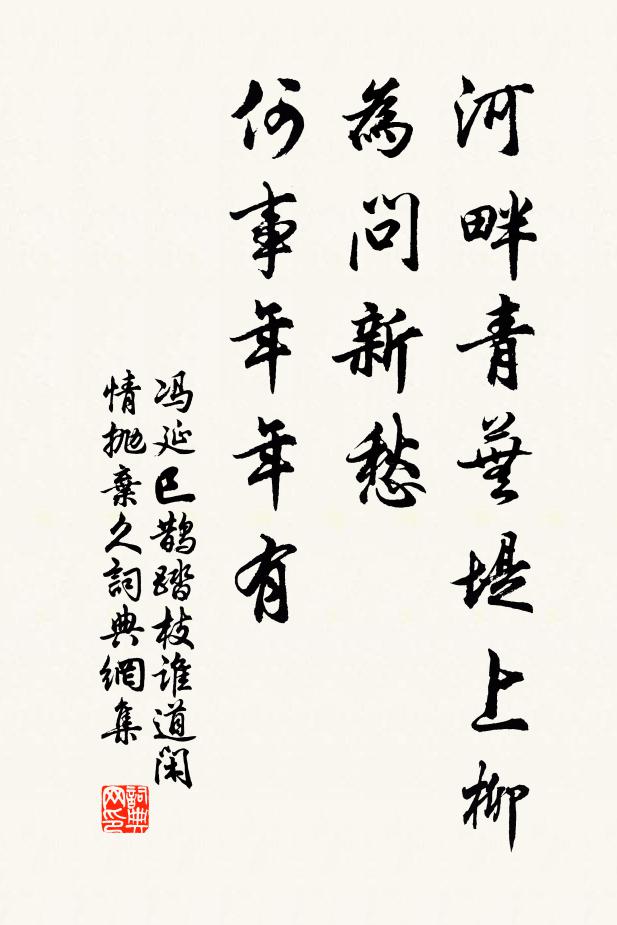 河畔青蕪堤上柳
為問新愁
何事年年有
冯延巳鹊踏枝谁道闲
情抛棄久詞典網集
詞典
网印